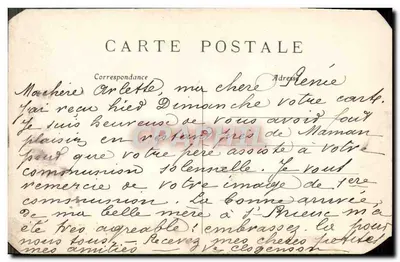 CARTE POSTALE
Correspondance Adresse
Ma chère Arlette, ma chère Irénie
J'ai reçu hier Dimanche votre carte.
Je suis heureuse de vous avoir fait
plaisir en restant près de Maman
pour que votre père assiste à votre
communion solennelle. Je vous
remercie de votre image de 1ere
communion. La bonne arrivée
de ma belle mère à St Brieuc m'a
été très agréable; embrassez la pour
nous tous. — Recevez mes chères petites
mes amitiés —